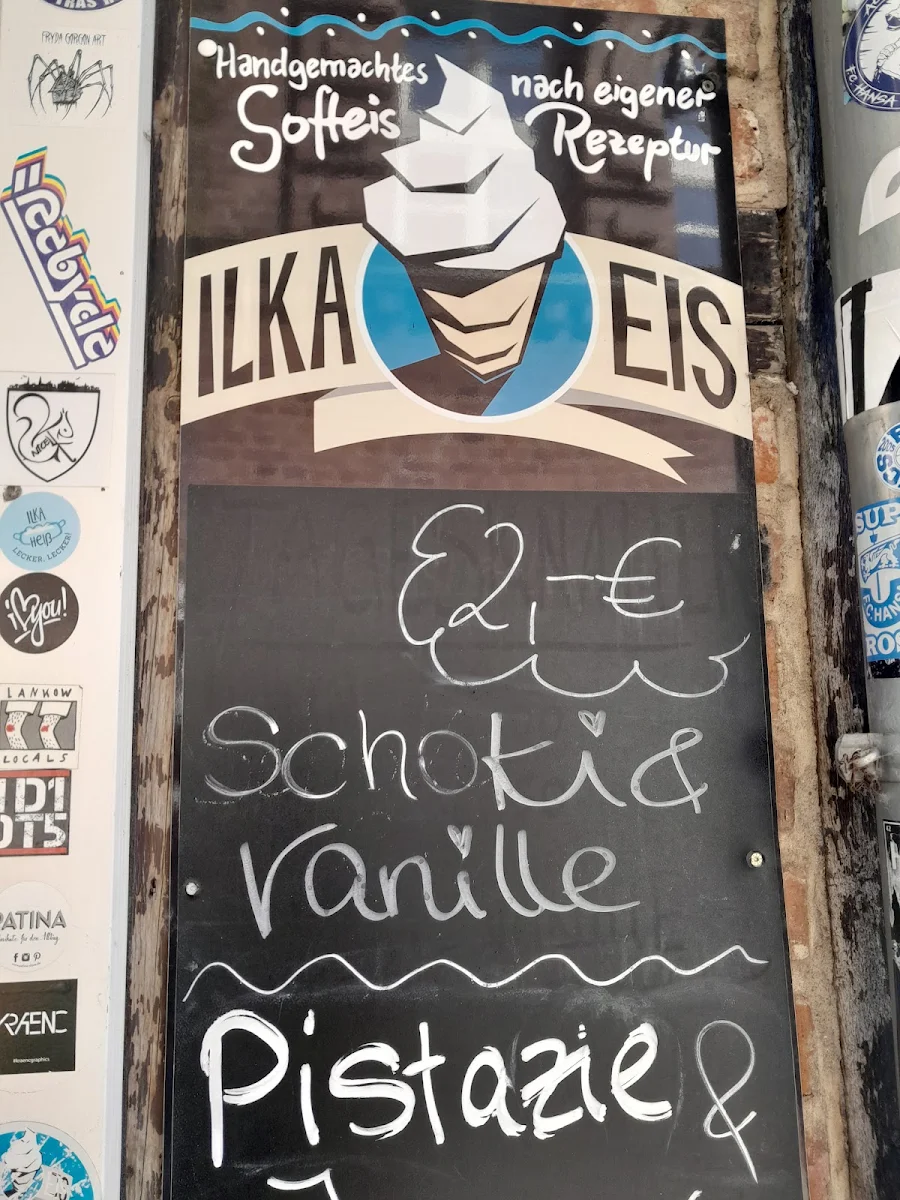 Handgemachtes
Softeis
nach eigener
Rezeptur
ILKA EIS
2,-€
Schoki &
Vanille
Pistazie &
FRYDA GORGON ART
ILKA
HEIß
LECKER, LECKER!
i ♥ you!
LANKOW
LOCALS
PATINA
#losencgraphics
F.C. HANSA
F.C. HANSA